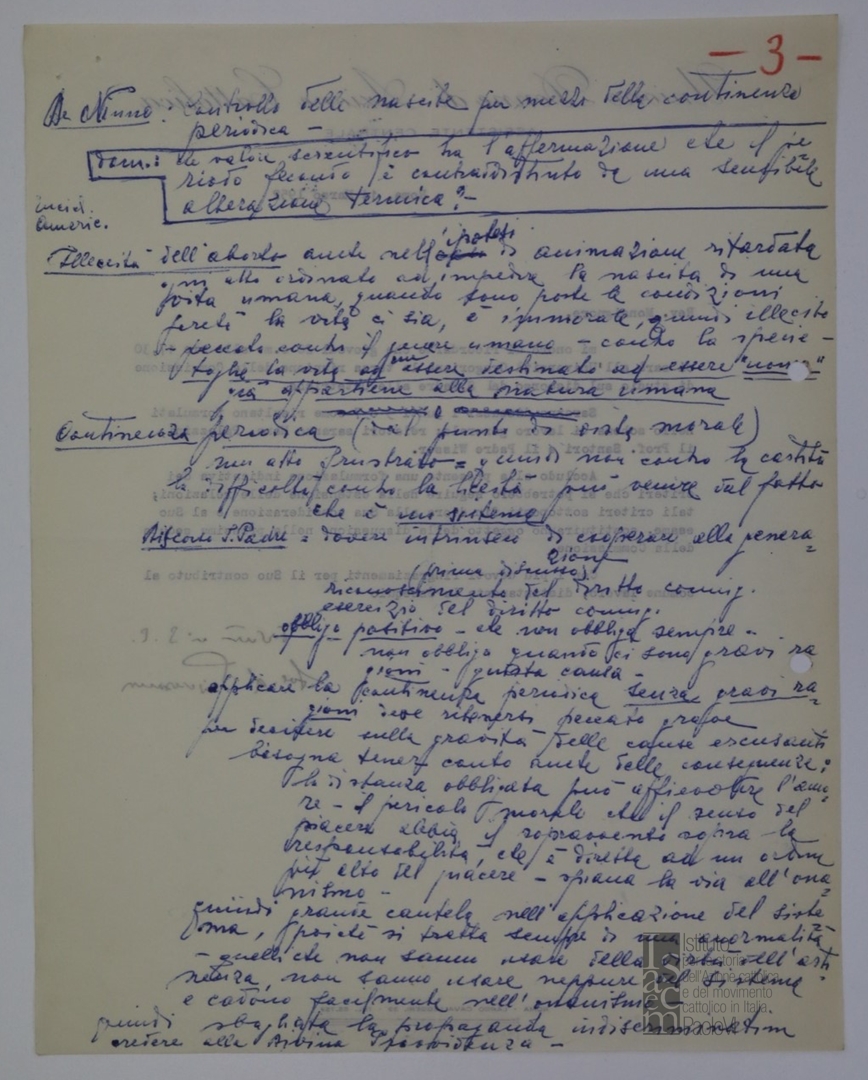 - 3 -
De Ninno: controllo delle nascite per mezzo della continenza
periodica -
dom.: che valore scientifico ha l'affermazione che il pe
riodo fecondo è contraddistinto da una sensibile
alterazione termica? -
Americ.
Illeceità dell'aborto anche nell'ipotesi di animazione ritardata
ogni atto ordinato ad impedire la nascita di una
vita umana, quando sono poste le condizioni
perché la vita ci sia, è immorale, quindi illecito
- peccato contro il genere umano - contro la specie -
toglie la vita ad un essere destinato ad essere "uomo"
già appartiene alla natura umana
Continenza periodica (dal punto di vista morale)
non atto frustrato = quindi non contro la castità
la difficoltà contro la liceità può venire dal fatto
che è un sistema
Discorso S. Padre = dovere intrinseco di cooperare alla genera=
zione
(prima discusso)
riconoscimento del diritto coniug.
esercizio del diritto coniug.
obbligo positivo - che non obbliga sempre -
non obbliga quando ci sono gravi ra
gioni - giusta causa -
applicare la continenza periodica senza gravi ra=
gioni deve ritenersi peccato grave
per decidere sulla gravità delle cause escusanti
bisogna tener conto anche delle conseguenze:
la distanza obbligata può affievolire l'amo=
re - il pericolo morale che il senso del
piacere abbia il sopravvento sopra la
responsabilità, che è diretta ad un ordine
più alto del piacere - spiana la via all'ona=
nismo -
quindi grande cautela nell'applicazione del siste
ma, poiché si tratta sempre di una anormalità
- quelli che non sanno usare della dell'asti
nenza, non sanno usare neppure del sistema
e cadono facilmente nell'onanismo -
quindi sbagliata la propaganda indiscriminatim
credere alla Divina Provvidenza -
Istituto
per la storia
dell'Azione cattolica
e del movimento
cattolico in Italia
Paolo VI